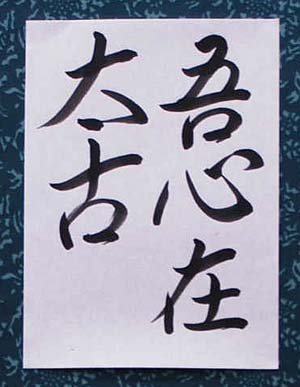 吾心在
太古